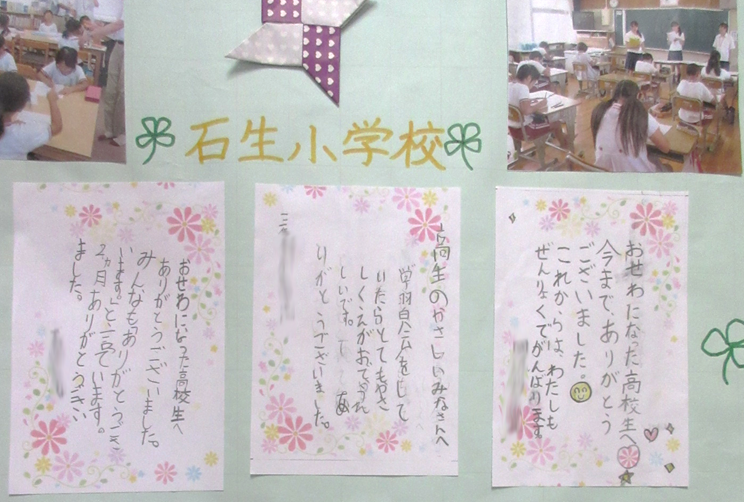 石生小学校
おせわになった高校生へ
今まで、ありがとう
ございました。
これからは、わたしも
ぜんりょくでがんばります
高校生のやさしいみなさんへ
いたらとてもやさ
しくおしえてくれ
しいです。
りがとうございました。
おせわになった高校生へ
ありがとうございました。
みんなも「ありがとうござ
います。」と、言っています。
2ヵ月、ありがとうござい
ました。